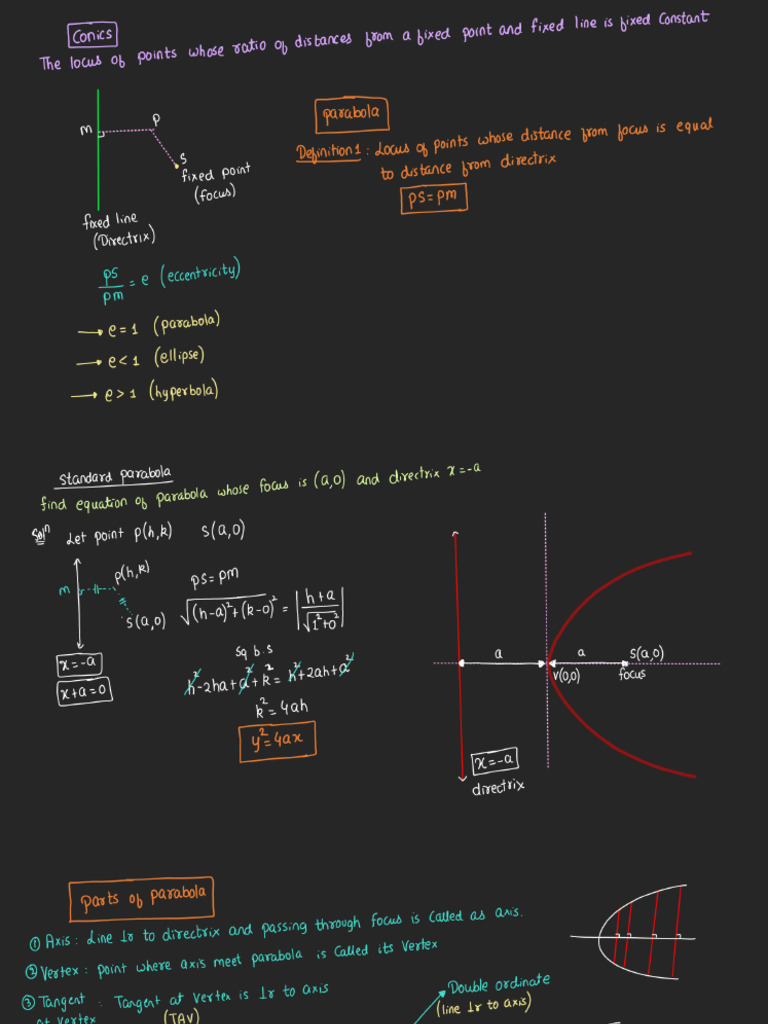 Conics
The locus of points whose ratio of distances from a fixed point and fixed line is fixed Constant
m
P
S
fixed point
(focus)
fixed line
(Directrix)
parabola
Definition 1 : Locus of points whose distance from focus is equal
to distance from directrix
PS = PM
PS/PM = e (eccentricity)
→ e = 1 (parabola)
→ e < 1 (ellipse)
→ e > 1 (hyperbola)
standard parabola
find equation of parabola whose focus is (a,0) and directrix x = -a
Solⁿ Let point P(h,k) S(a,0)
m
P(h,k)
S(a,0)
x = -a
x + a = 0
PS = PM
√((h-a)² + (k-0)²) = |(h+a)/√(1²+0²)|
Sq b.s
h² - 2ha + a² + k² = h² + 2ah + a²
k² = 4ah
y² = 4ax
a
a
S(a,0)
V(0,0)
focus
x = -a
directrix
parts of parabola
① Axis : Line ⊥r to directrix and passing through focus is called as axis.
② Vertex : point where axis meet parabola is Called its Vertex
③ Tangent : Tangent at Vertex is ⊥r to axis
at Vertex (TAV)
Double ordinate
(line ⊥r to axis)